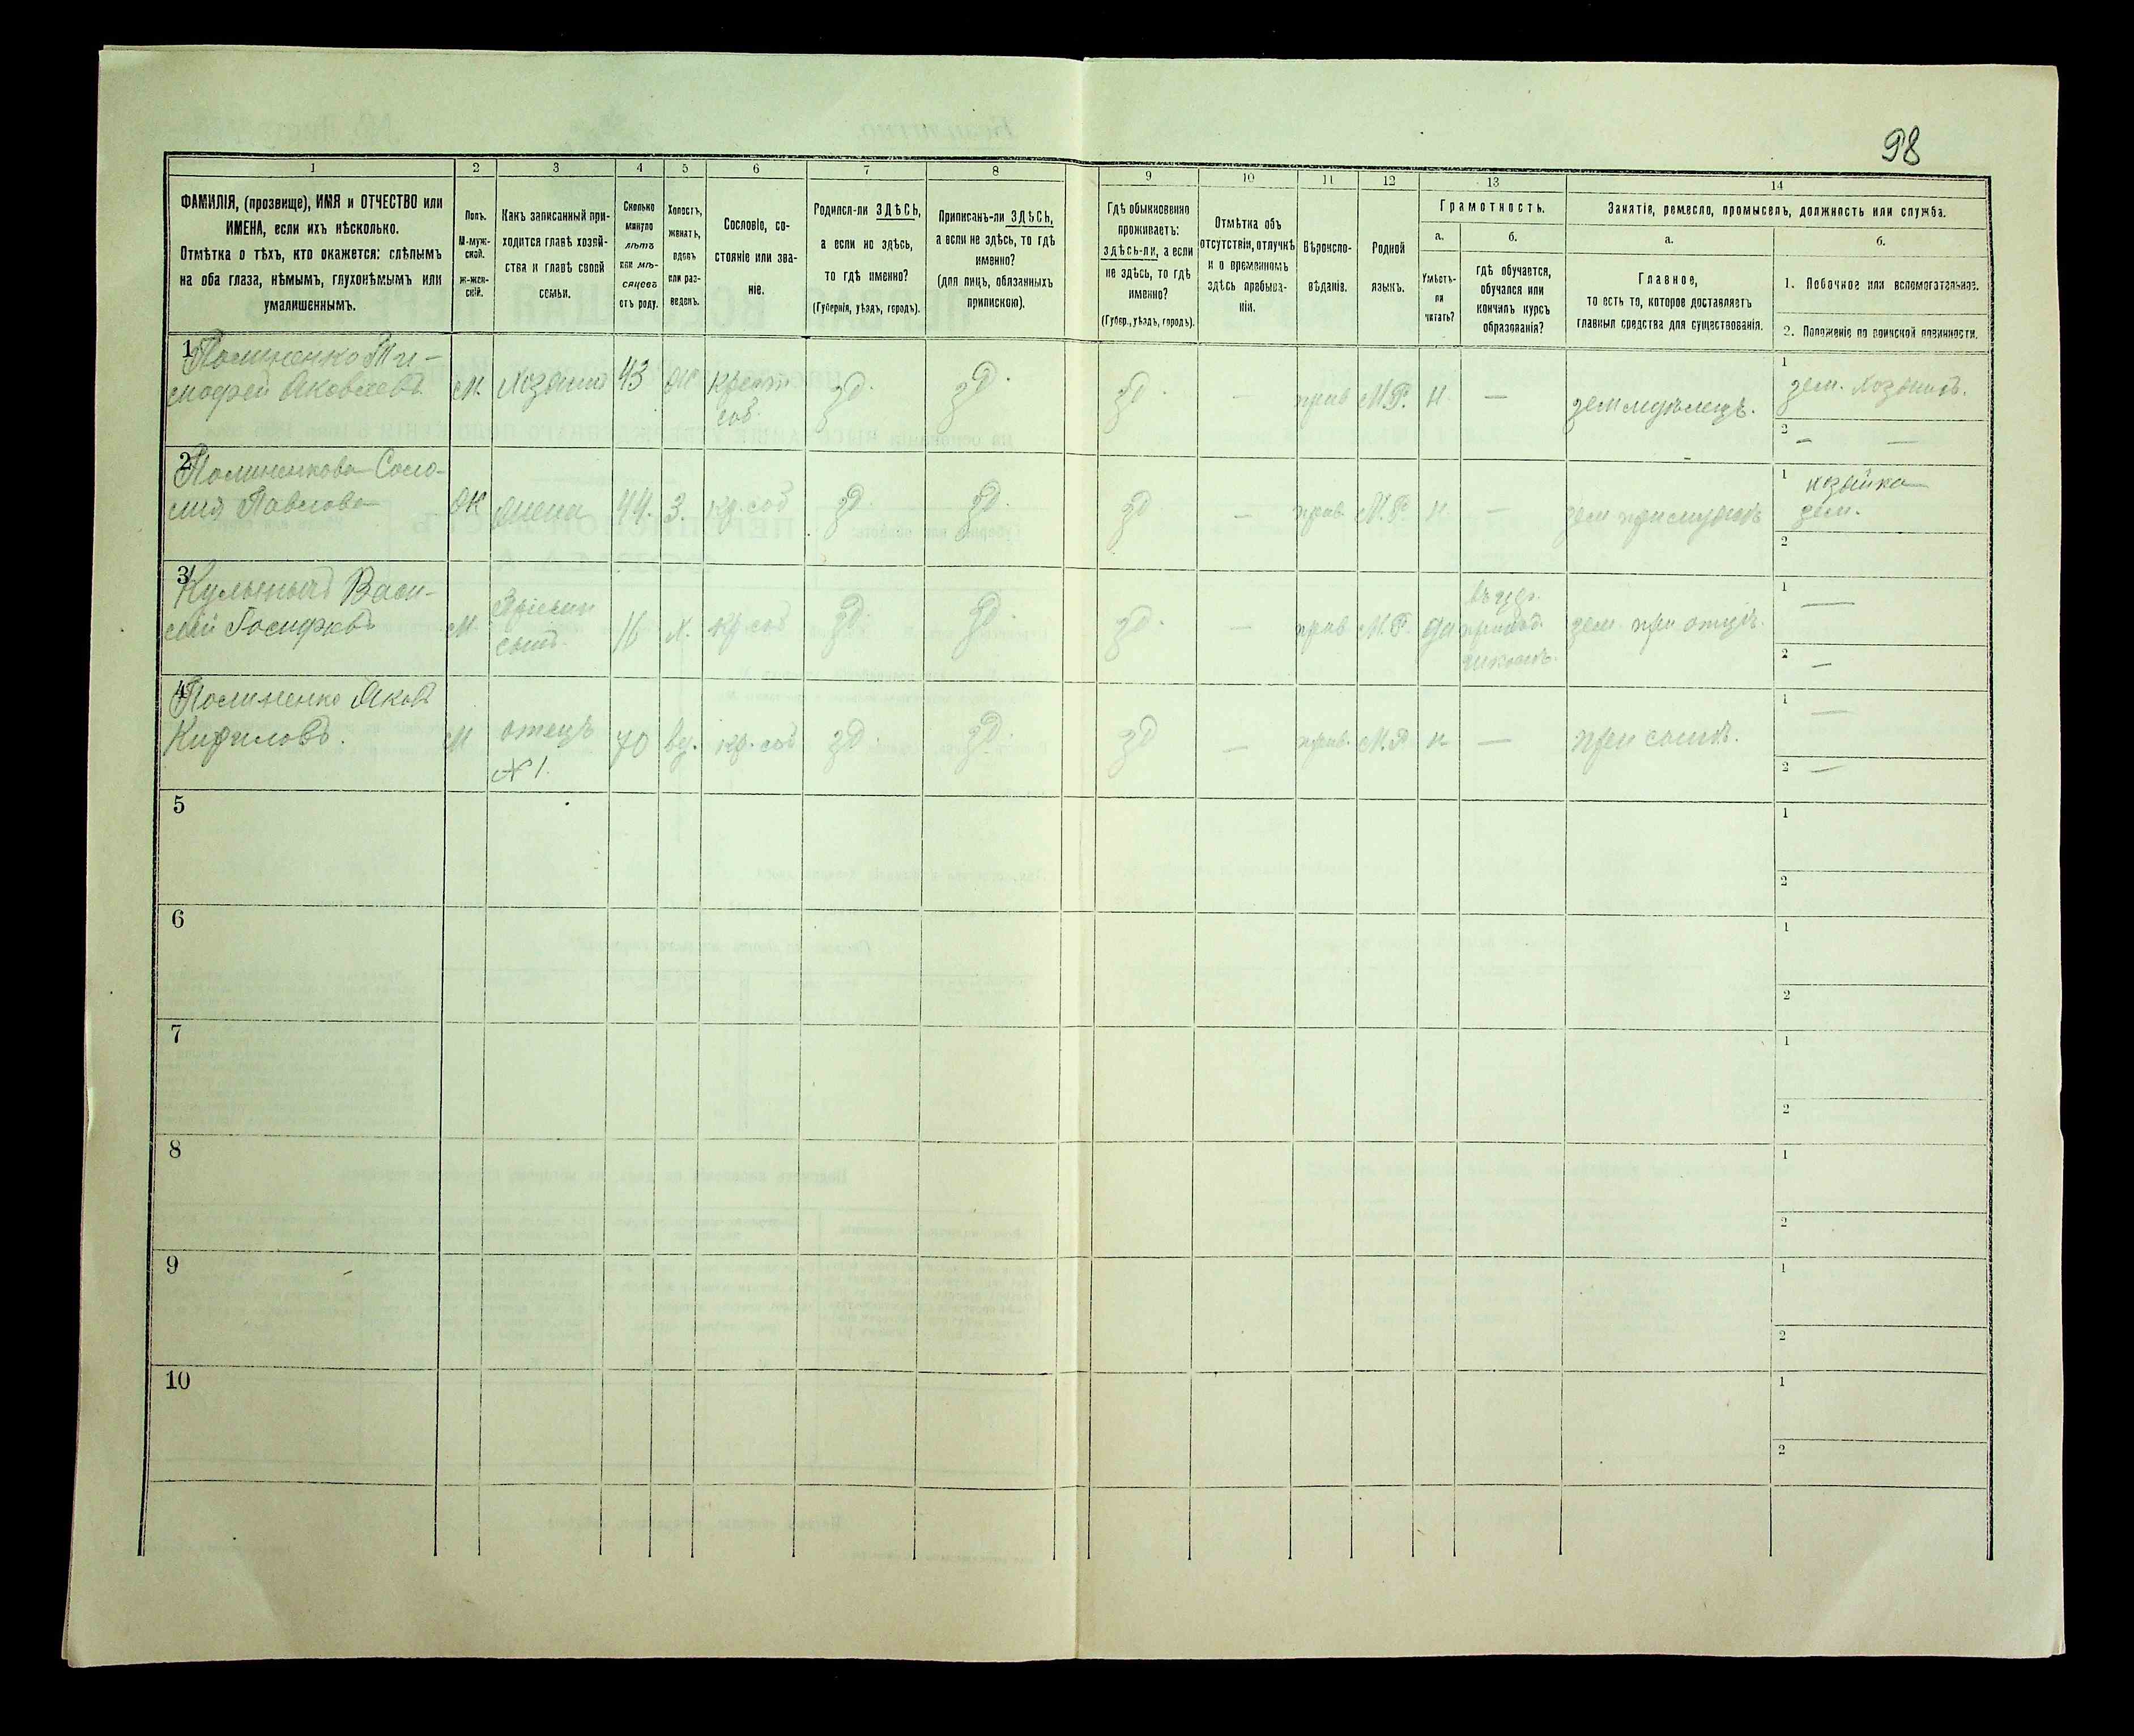 98
1 2 3 4 5 6 7 8 9 10 11 12 13 14
ФАМИЛІЯ, (прозвище), ИМЯ и ОТЧЕСТВО или
ИМЕНА, если ихъ нѣсколько.
Отмѣтка о тѣхъ, кто окажется: слѣпымъ
на оба глаза, нѣмымъ, глухонѣмымъ или
умалишеннымъ.
Полъ.
М-муж-
ской.
ж-жен-
скій.
Какъ записанный при-
ходится главѣ хозяй-
ства и главѣ своей
семьи.
Сколько
минуло
лѣтъ
или мѣ-
сяцевъ
отъ роду.
Холостъ,
женатъ,
вдовъ
или раз-
веденъ.
Сословіе, со-
стояніе или зва-
ніе.
Родился-ли ЗДѢСЬ,
а если не здѣсь,
то гдѣ именно?
(Губернія, уѣздъ, городъ).
Приписанъ-ли ЗДѢСЬ,
а если не здѣсь, то гдѣ
именно?
(для лицъ, обязанныхъ
припискою).
Гдѣ обыкновенно
проживаетъ:
здѣсь-ли, а если
не здѣсь, то гдѣ
именно?
(Губер., уѣздъ, городъ).
Отмѣтка объ
отсутствіи, отлучкѣ
и о временномъ
здѣсь пребыва-
ніи.
Вѣроиспо-
вѣданіе.
Родной
языкъ.
Грамотность.
а.
Умѣетъ-
ли
читать?
б.
гдѣ обучается,
обучался или
кончилъ курсъ
образованія?
Занятіе, ремесло, промыселъ, должность или служба.
а.
Главное,
то есть то, которое доставляетъ
главныя средства для существованія.
б.
1. Побочное или вспомогательное.
2. Положеніе по воинской повинности.
1
Ти-
мофей Яковлевъ
М. Хозяинъ 43 Ж Крест
соб.
зд. зд. зд. — прав М.Р. н. —
1
зем. хозяинъ.
2 — —
2
Соло-
мія Павлова
Ж жена 44. З. кр. соб зд. зд. зд — прав М.Р. н. —
1 хозяйка
зем.
2
3
Васи-
лій
М.
сынъ.
16 Х. кр. соб зд. зд. зд. — прав М.Р. да
школѣ.
зем. при отцѣ.
1 —
2 —
4
Яковъ
Кириловъ.
М отецъ
№ 1.
70 вд. кр. соб зд. зд. зд — прав. М.Р н — при сынѣ.
1 —
2 —
5
1
2
6
1
2
7
1
2
8
1
2
9
1
2
10
1
2